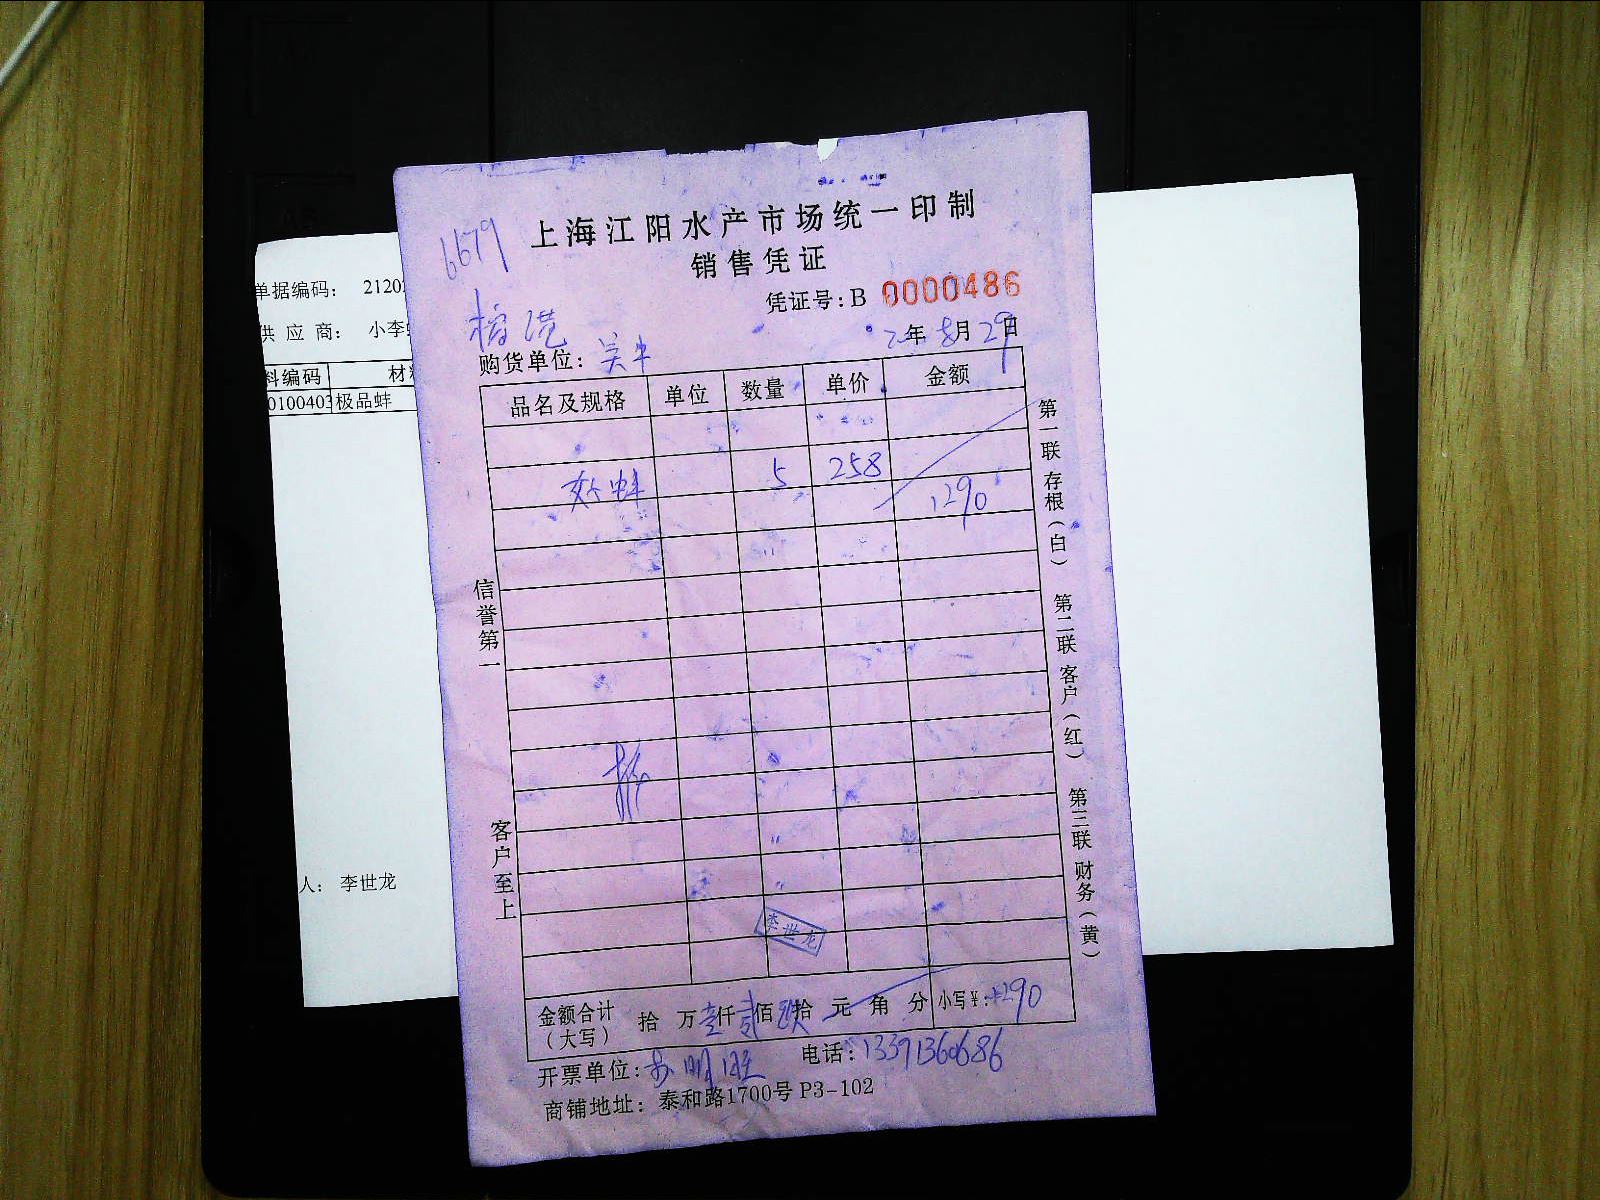 6679
上海江阳水产市场统一印制
销售凭证
凭证号:B 0000486
榕港
购货单位: 吴中
2年8月29日
品名及规格 单位 数量 单价 金额
蚌 5 258
1290
信誉第一
客户至上
第一联 存根(白) 第二联 客户(红) 第三联 财务(黄)
李世龙
金额合计(大写) 拾 万壹仟贰佰玖拾 元 角 分 小写¥:1290
开票单位: 电话:13391360686
商铺地址: 泰和路1700号 P3-102
单据编码: 2120
供 应 商: 小李
料编码 材
0100403 极品蚌
人: 李世龙